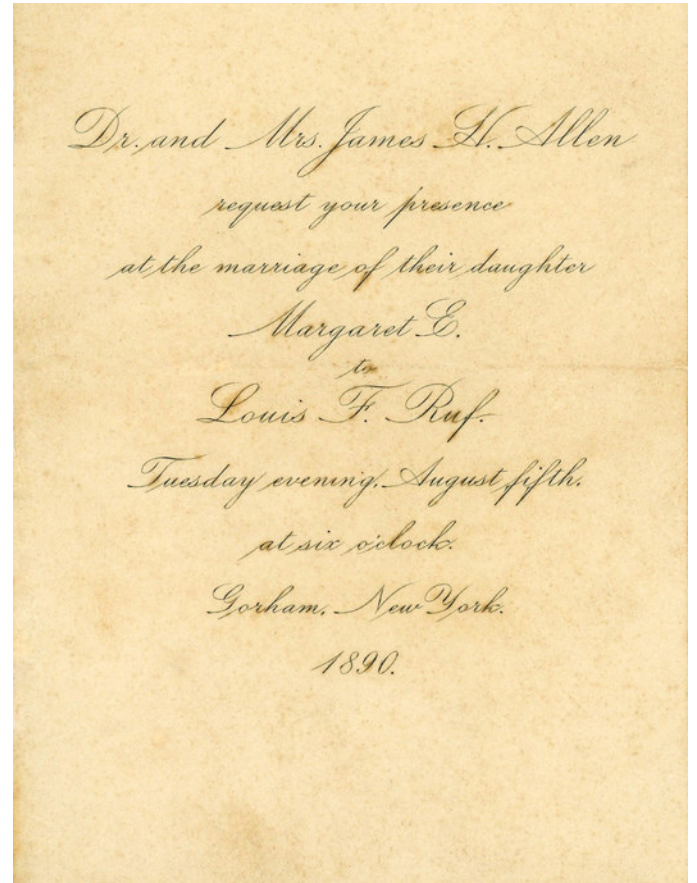 Dr. and Mrs. James H. Allen
request your presence
at the marriage of their daughter
Margaret E.
to
Louis F. Ruf.
Tuesday evening, August fifth.
at six o'clock.
Gorham, New York.
1890.